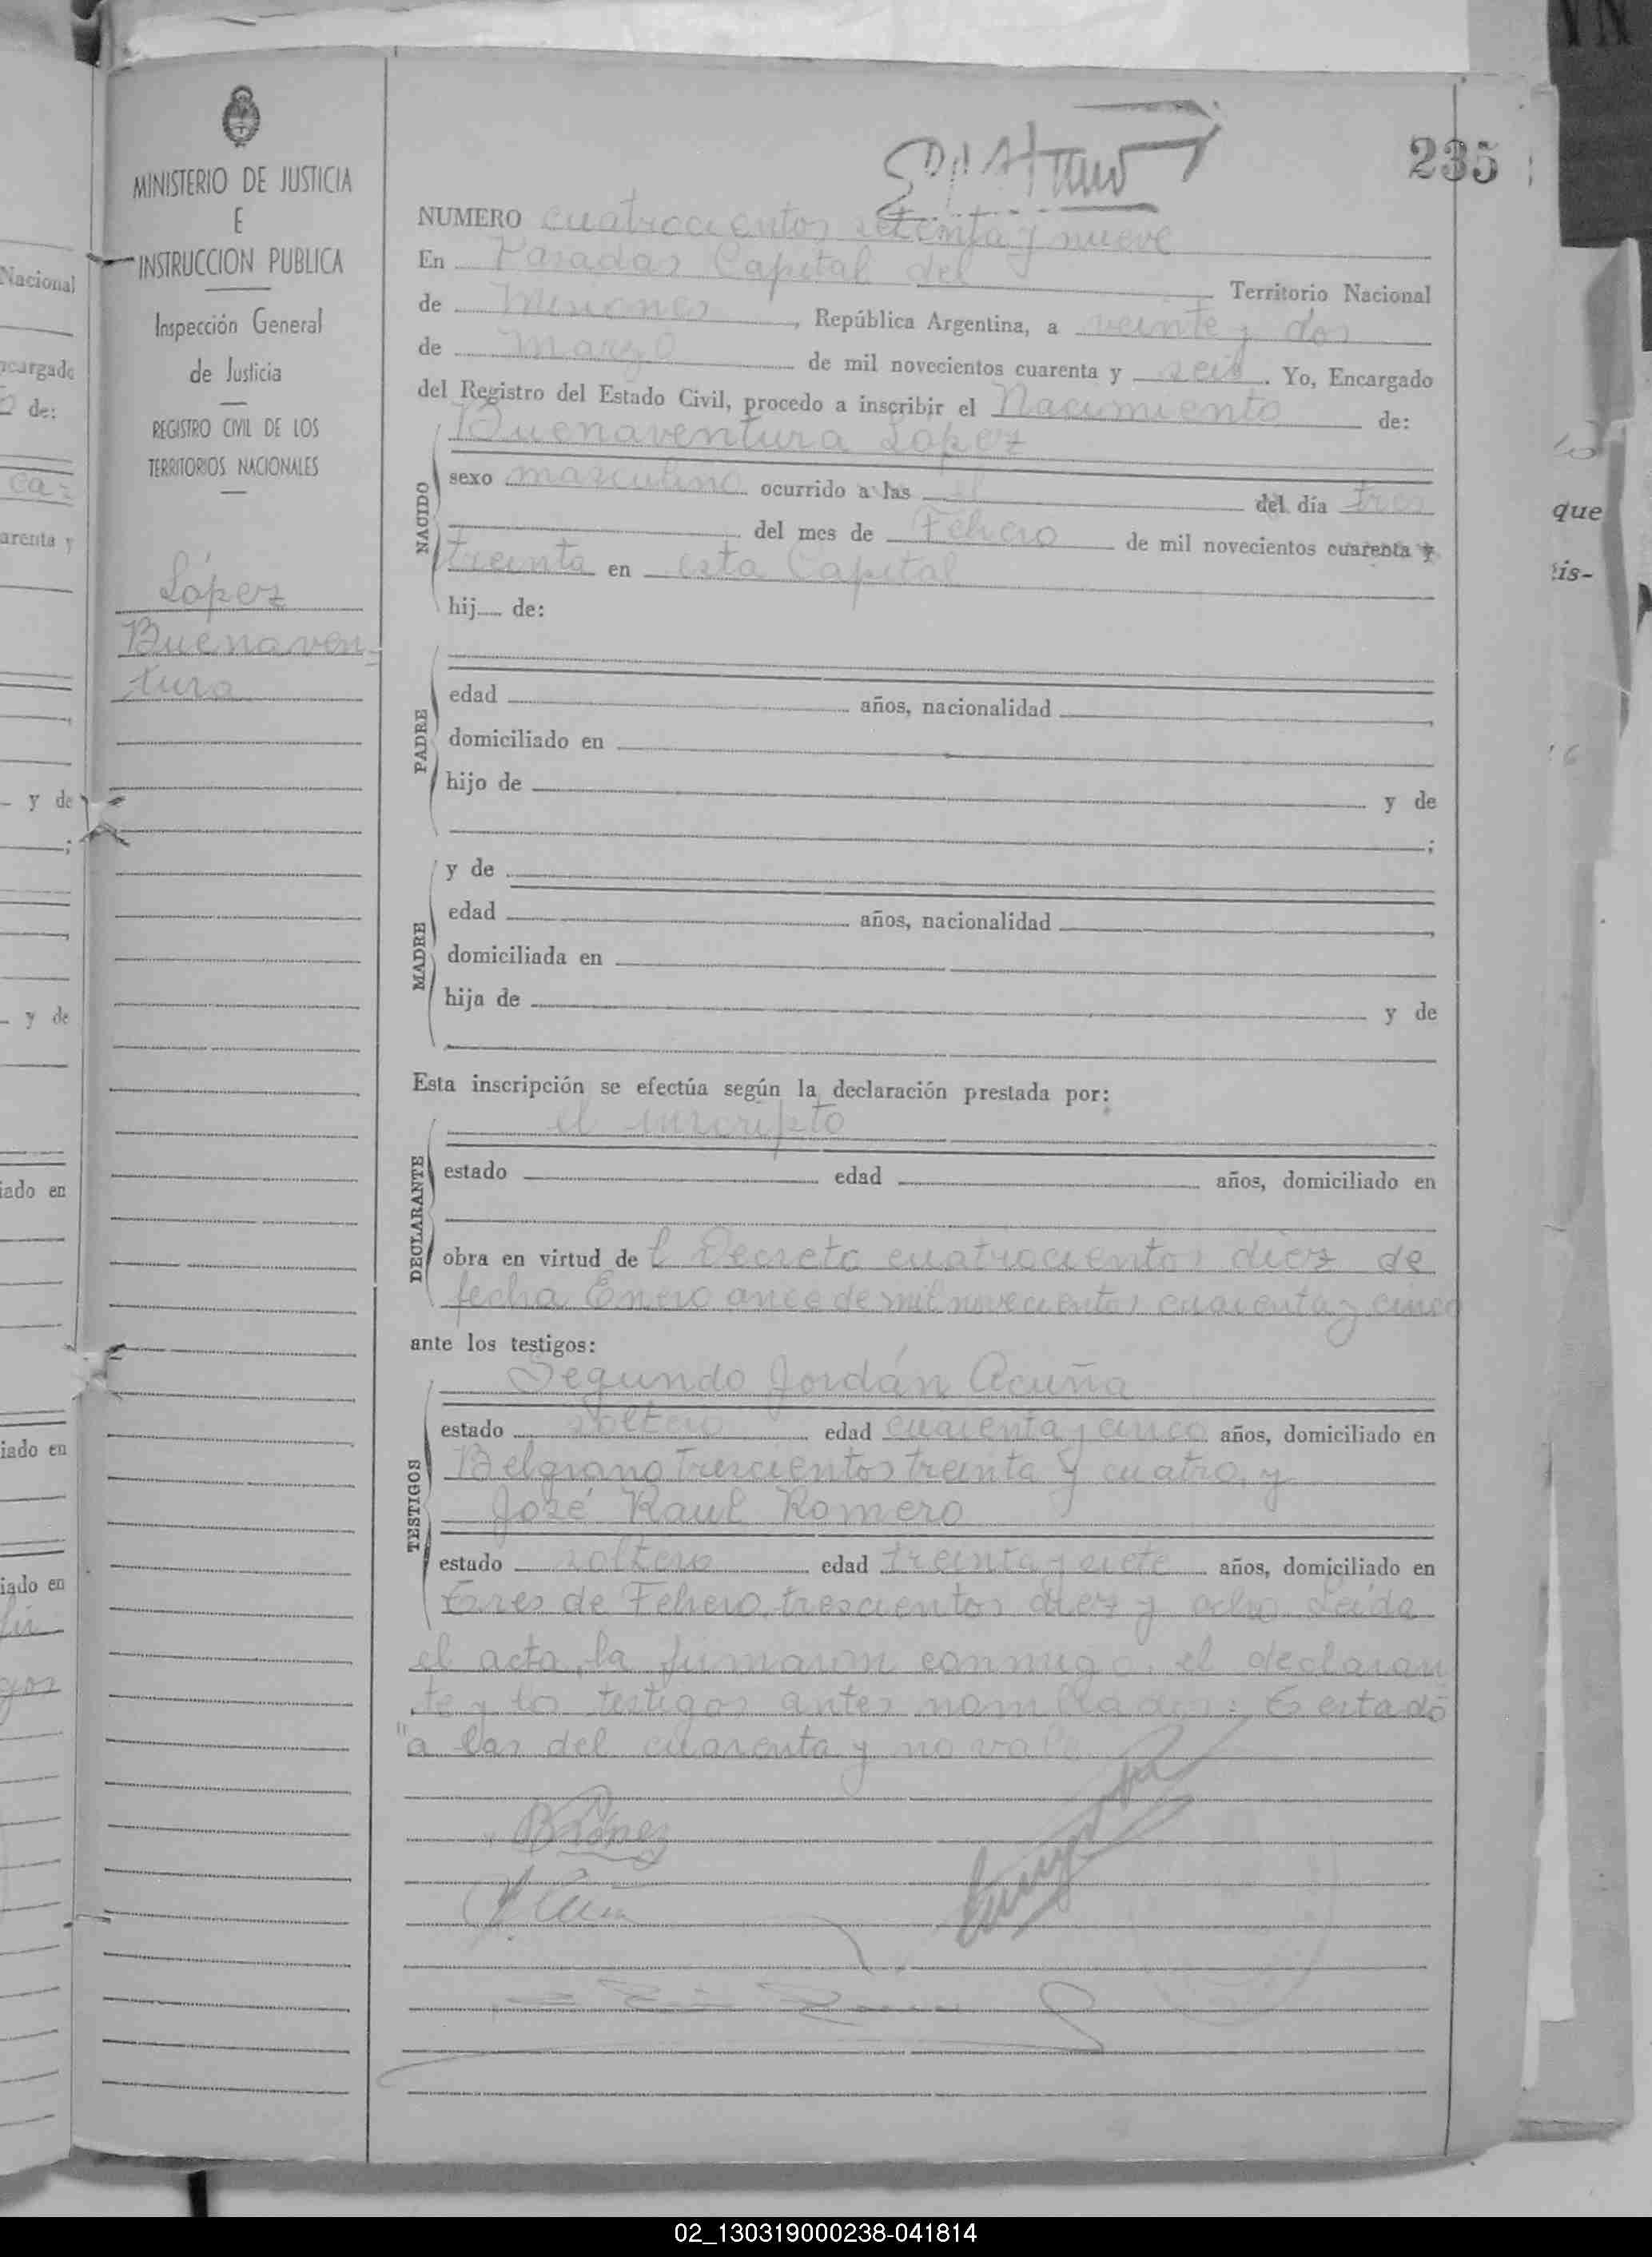 235
MINISTERIO DE JUSTICIA
E
INSTRUCCION PUBLICA
Inspección General
de Justicia
REGISTRO CIVIL DE LOS
TERRITORIOS NACIONALES
López
Buenaven-
tura
NUMERO cuatrocientos setenta y nueve
En Posadas Capital del Territorio Nacional
de Misiones, República Argentina, a veinte y dos
de Marzo de mil novecientos cuarenta y seis. Yo, Encargado
del Registro del Estado Civil, procedo a inscribir el Nacimiento de:
Buenaventura López
NACIDO
sexo masculino ocurrido a las el del día tres
del mes de Febrero de mil novecientos cuarenta y
treinta en esta Capital
hij de:
PADRE
edad años, nacionalidad
domiciliado en
hijo de y de
;
MADRE
y de
edad años, nacionalidad
domiciliada en
hija de y de
Esta inscripción se efectúa según la declaración prestada por:
el inscripto
DECLARANTE
estado edad años, domiciliado en
obra en virtud de l Decreto cuatrocientos diez de
fecha Enero once de mil novecientos cuarenta y cinco
ante los testigos:
Segundo Jordán Acuña
TESTIGOS
estado soltero edad cuarenta y cinco años, domiciliado en
Belgrano trescientos treinta y cuatro, y
José Raul Romero
estado soltero edad treinta y siete años, domiciliado en
Tres de Febrero, trescientos diez y ocho Leida
el acta, la firmaron conmigo, el declaran
te y los testigos antes nombrados: Testado
"a las del cuarenta y no vale
B López
Nacional
ncargado
de:
caz
arenta y
y de
;
y de
iado en
iado en
iado en
gos
que
is-
02_130319000238-041814